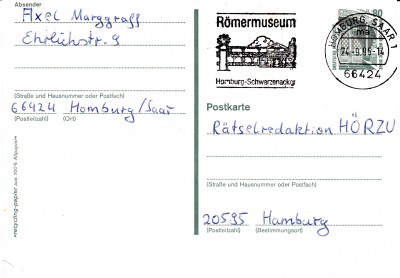 Absender
Axel Marggraff
Ehrlichstr. 9
(Straße und Hausnummer oder Postfach)
66424 Homburg/Saar
(Postleitzahl) (Ort)
Römermuseum
Homburg-Schwarzenacker
HOMBURG, SAAR 1
ma
66424
80
Postkarte
Rätselredaktion HÖRZU
(Straße und Hausnummer oder Postfach)
20595 Hamburg
(Postleitzahl) (Bestimmungsort)
recycling-papier aus 100% Altpapier